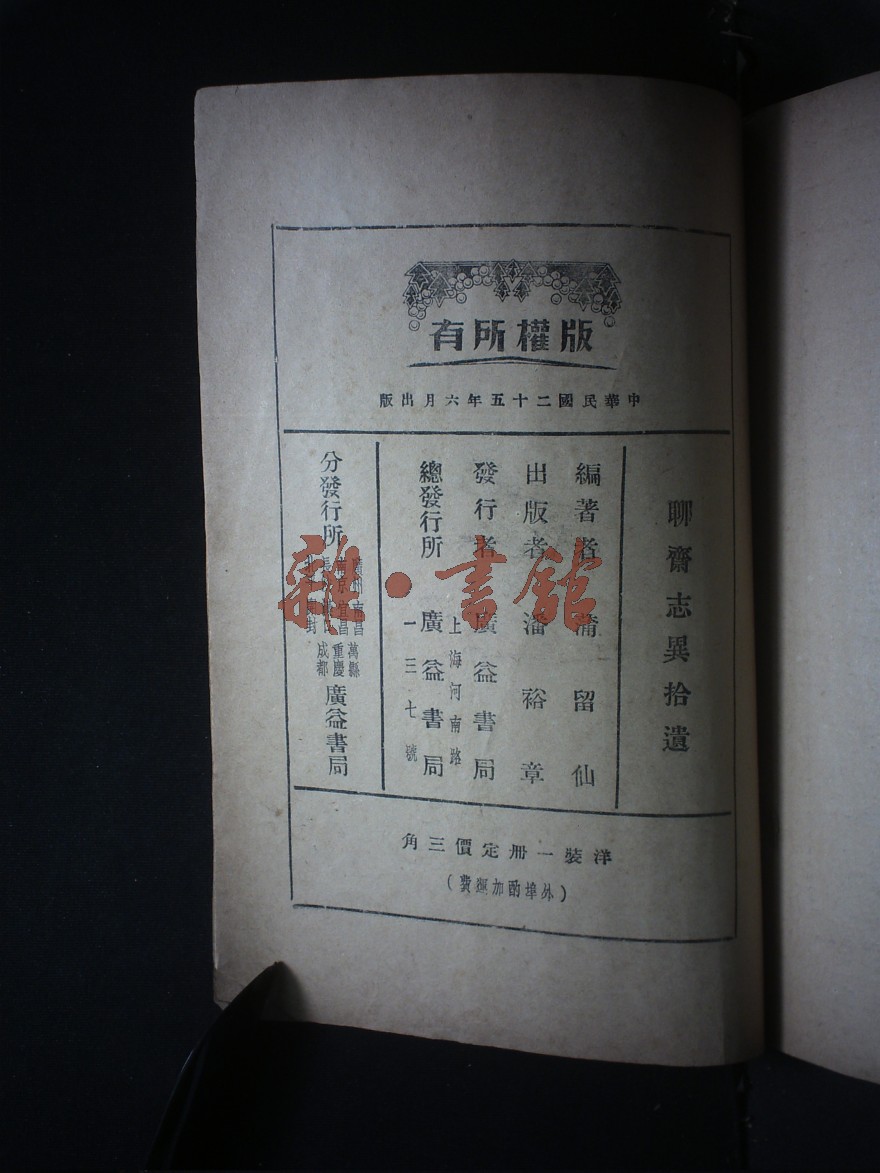 版權所有
中華民國二十五年六月出版
聊齋志異拾遺
編著者 蒲留仙
出版者 潘裕章
發行者 廣益書局
上海河南路
總發行所 廣益書局
一三七號
分發行所
廣州 南昌 萬縣
南京 宜昌 重慶
開封 成都
廣益書局
洋裝一冊定價三角
(外埠酌加運費)
雜·書館